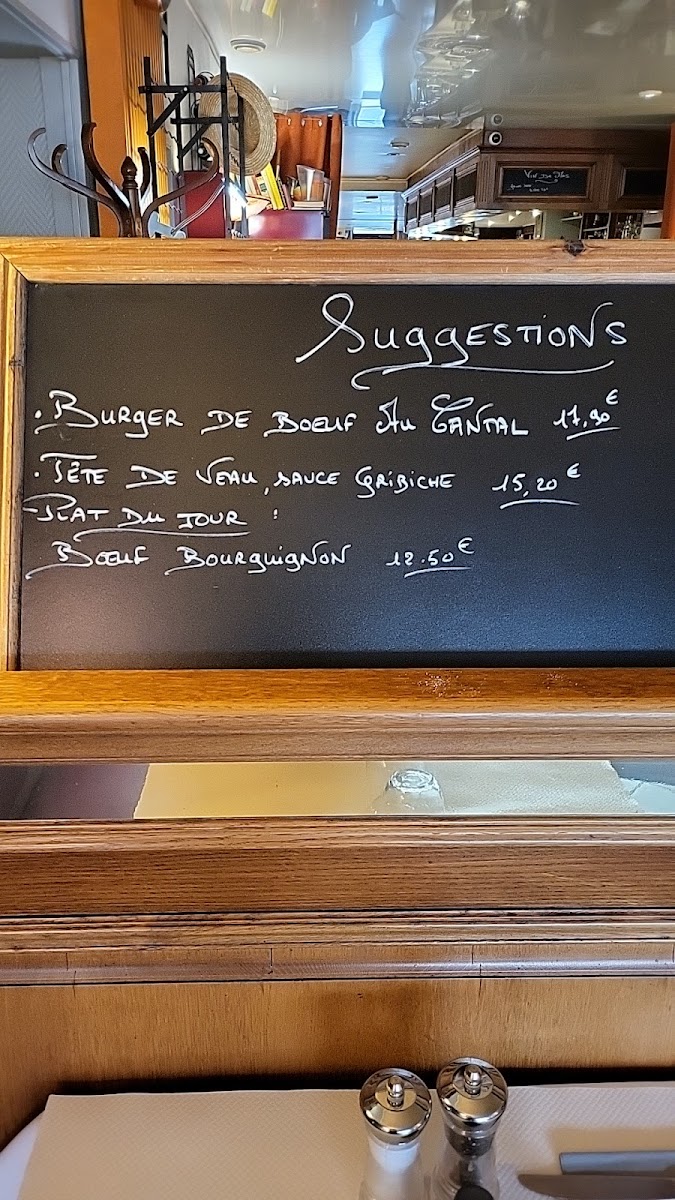 Suggestions
. Burger de Boeuf Au Cantal 17,90€
. Tête de Veau, sauce Gribiche 15,20€
- Plat du jour :
Boeuf Bourguignon 12.50€